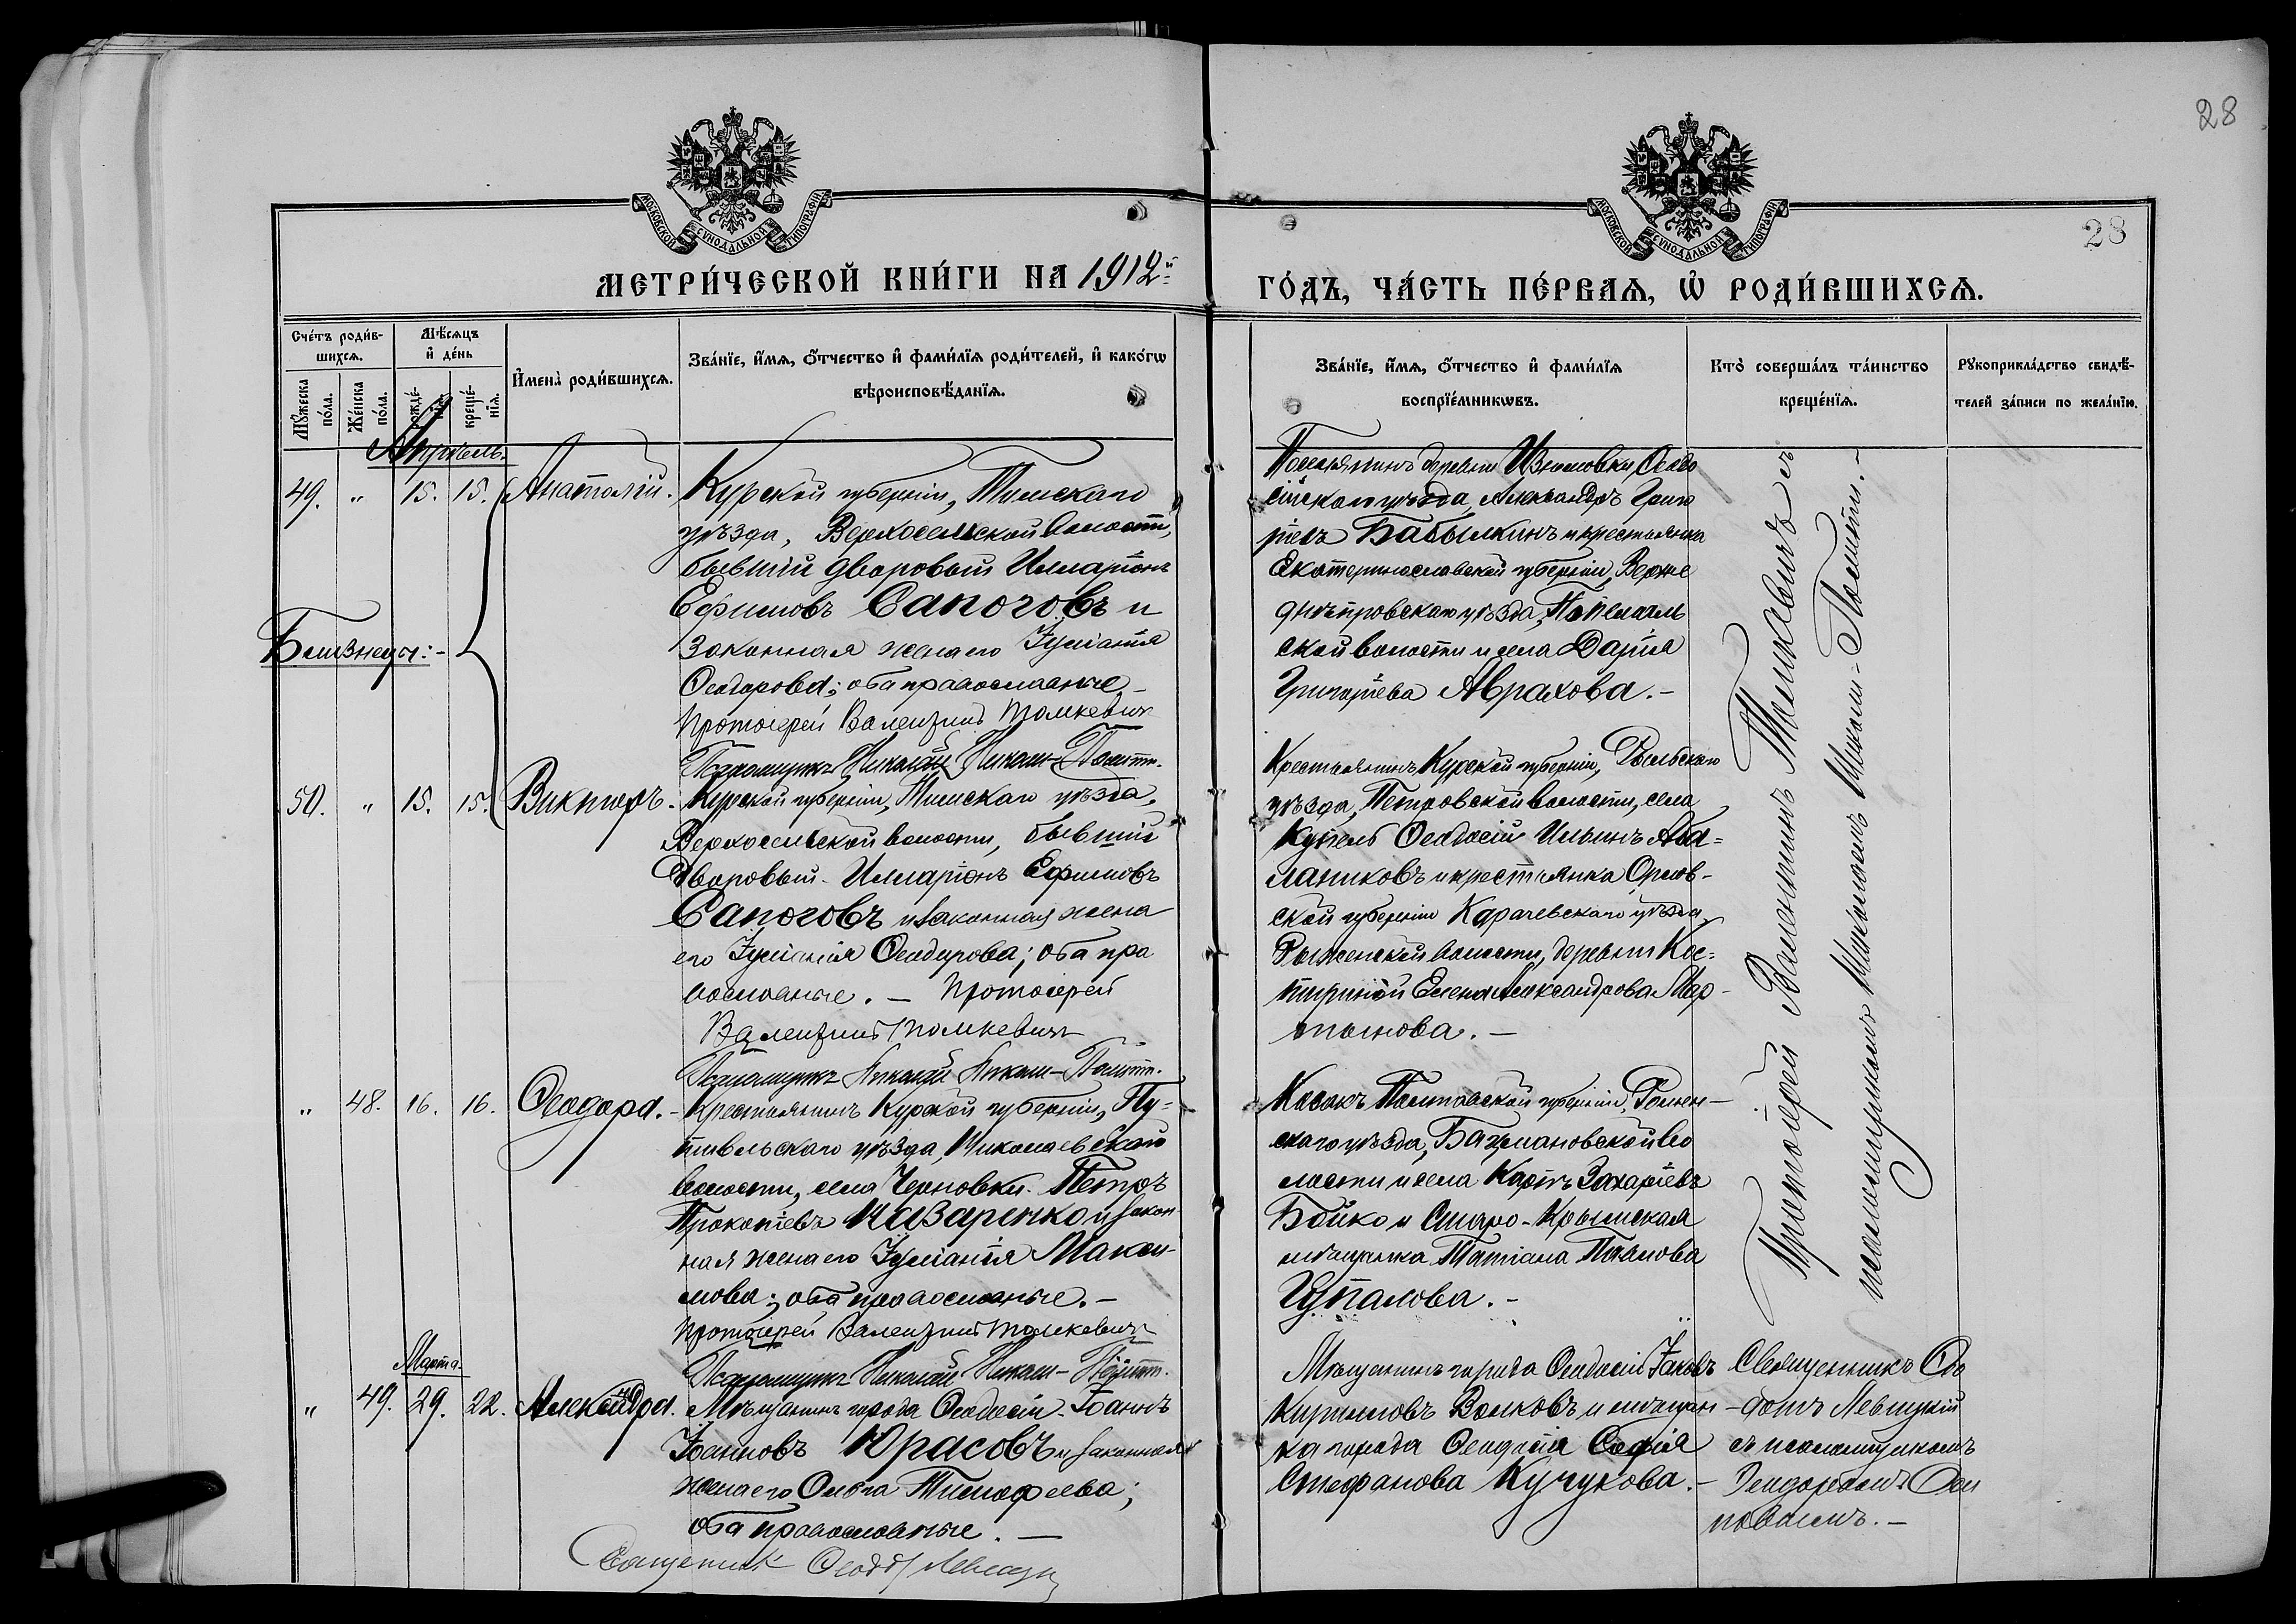 28
28
МОСКОВСКОЙ СѴНОДАЛЬНОЙ ТИПОГРАФІИ
МОСКОВСКОЙ СѴНОДАЛЬНОЙ ТИПОГРАФІИ
МЕТРИ́ЧЕСКОЙ КНИ́ГИ НА 1912й
ГО́ДЪ, ЧА́СТЬ ПЕ́РВАЯ, Ѡ҆ РОДИ́ВШИХСЯ.
Сче́тъ роди́в-
шихся.
Мꙋ́жеска
по́ла.
Же́нска
по́ла.
Мѣ́сяцъ
и҆ де́нь
рожде́-
нїя.
креще́-
нїя.
И҆мена̀ роди́вшихся.
Зва́нїе, и҆́мя, ѻ҆́тчество и҆ фами́лїя роди́телей, и҆ како́гѡ
вѣроисповѣ́данїя.
Зва́нїе, и҆́мя, ѻ҆́тчество и҆ фами́лїя
воспрїе́мникѡвъ.
Кто̀ соверша́лъ та́инство
креще́нїя.
Рꙋкоприкла́дство свидѣ́-
телей за́писи по жела́нїю.
Апрѣль.
49. " 15. 15. Анатолій.
Близнецы:-
Курской губерніи, Тимскаго
уѣзда, Верхосемской волости,
бывшій дворовый Илларіонъ
Ефимовъ Сапоговъ и
законная жена его Іуліанія
Ѳеодорова; оба православные.-
Протоіерей Валентинъ Томкевичъ
Псаломщикъ Николай Николи-Политти.
Поселянинъ деревни Изюмовки, Ѳеодо
сійскаго уѣзда, Александръ Григо
ріевъ Бабылкинъ и крестьянка
Екатеринославской губерніи, Верхне
днѣпровскаго уѣзда,
ской волости и села Дарія
Григоріева Аврахова.-
50. " 15. 15. Викторъ.
Курской губерніи, Тимскаго уѣзда,
Верхосемской волости, бывшій
дворовый Илларіонъ Ефимовъ
Сапоговъ и законная жена
его Іуліанія Ѳеодорова; оба пра
вославные.- Протоіерей
Валентинъ Томкевичъ
Псаломщикъ Николай Николи-Политти.
Крестьянинъ Курской губерніи, Рыльскаго
уѣзда, Петровской волости, села
Ѳеодосій Ильинъ Аба=
ланиковъ и крестьянка Орлов-
ской губерніи Карачевскаго уѣзда,
волости, деревни Кос=
Елена Александрова Мар-
тынова.-
" 48. 16. 16. Ѳеодора.-
Крестьянинъ Курской губерніи, Пу=
тивльскаго уѣзда, Николаевской
волости, села Черновки Петръ
Прокопіевъ Назаренко и закон
ная жена его Іуліанія Макси-
мова; оба православные.-
Протоіерей Валентинъ Томкевичъ
Псаломщикъ Николай Николи-Политти.
Козакъ Полтавской губерніи, Ромен-
скаго уѣзда, Бахмановской во
лости и села Карпъ Захаріевъ
Бойко и Старо-Крымская
мѣщанка Татіана Павлова
Цупалова.-
Протоіерей Валентинъ Томкевичъ съ
псаломщикомъ Николаемъ Николи-Политти.-
Марта.
" 49. 29. 22. Александра.
Мѣщанинъ города Ѳеодосіи Іоаннъ
Іоанновъ Юрасовъ и законная
жена его Ольга Тимофеева;
оба православные.-
Священникъ Ѳеодотъ Левицкій
Мѣщанинъ города Ѳеодосіи Іаковъ
Кирилловъ Волковъ и мѣщан-
ка города Ѳеодосіи Софія
Стефанова Кучукова.-
Священникъ Ѳео
дотъ Левицкій
съ псаломщикомъ
Ѳеодоромъ Оси
повымъ.-